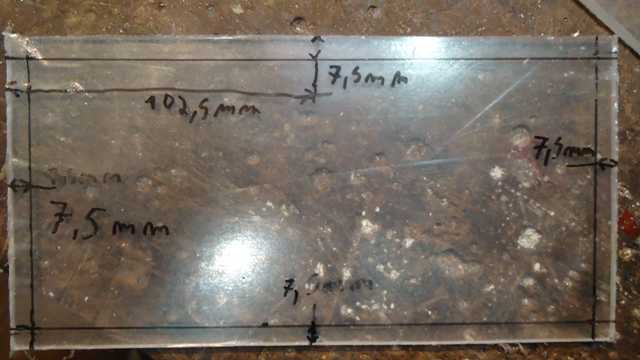 7,5mm
102,5mm
7,5mm
7,5mm
7,5mm